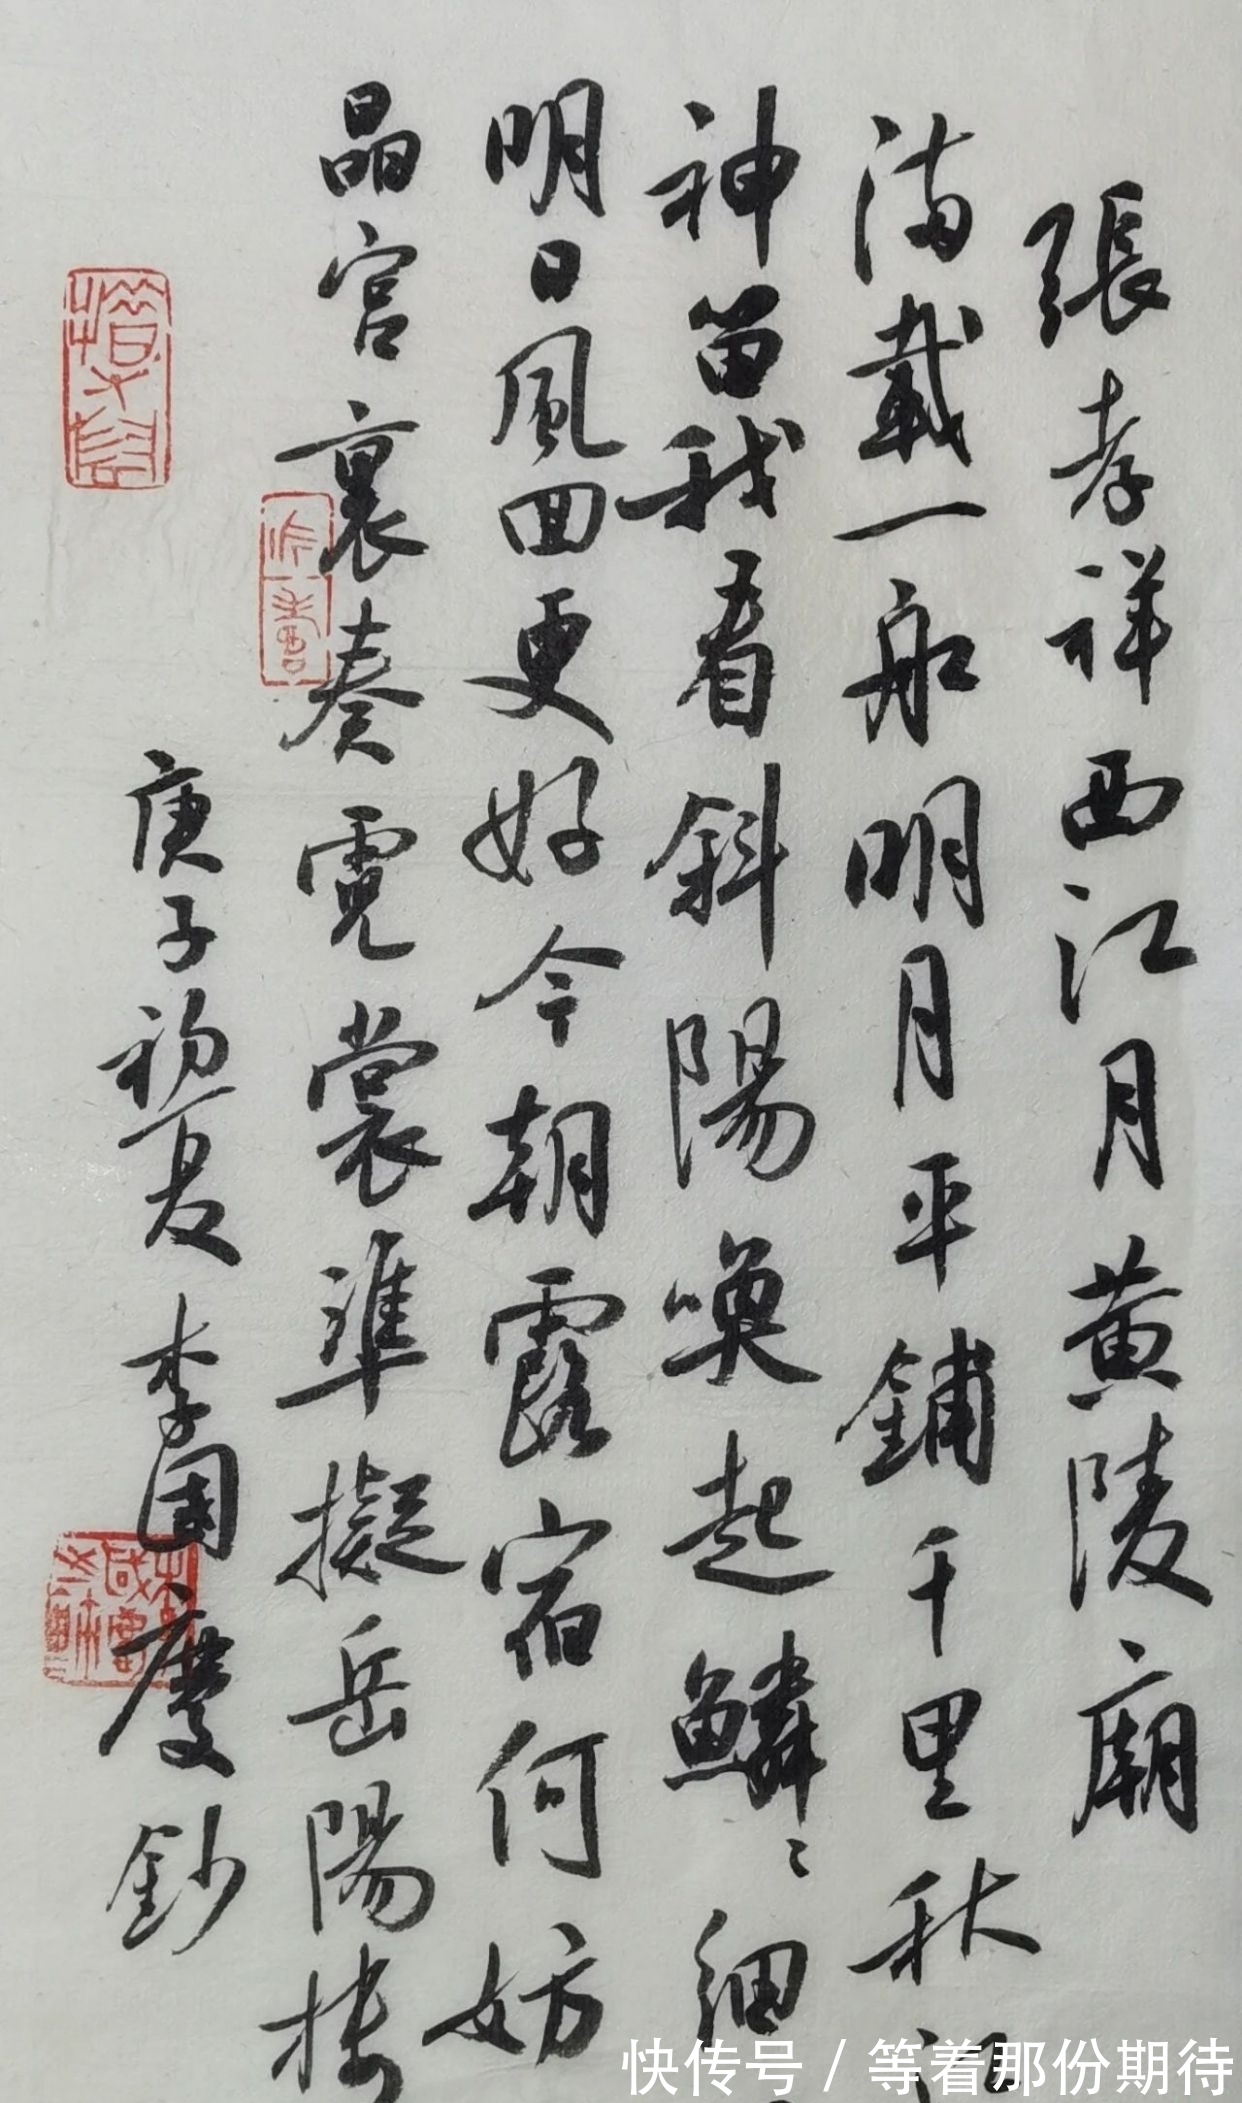 張孝祥西江月黄陵廟
満載一船明月平鋪千里秋江
神留我看斜陽喚起鱗〻細
明日風回更好今朝露宿何妨
晶宫裏奏霓裳準擬岳陽楼
庚子初夏李國慶鈔
快传号/等着那份期待